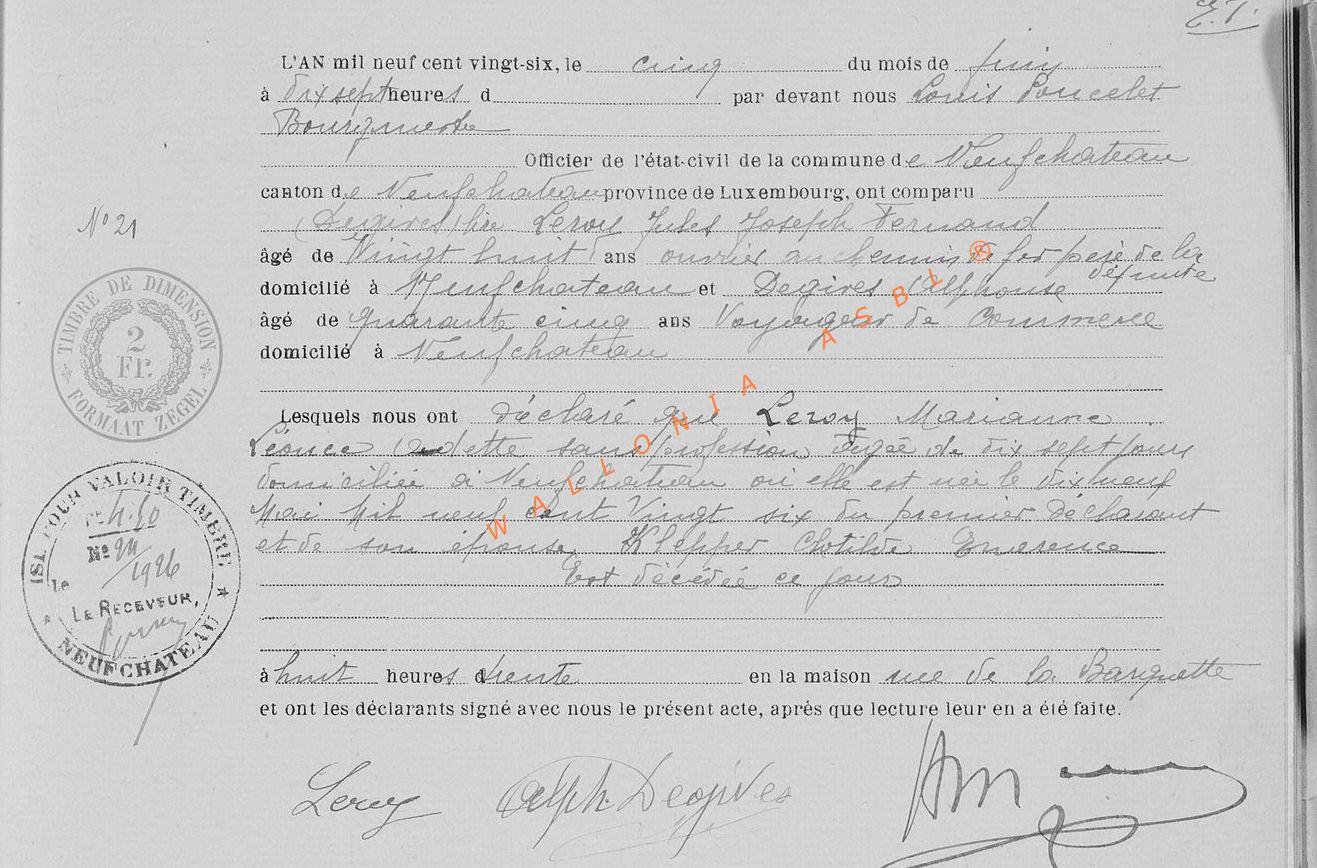 E.T.
L'AN mil neuf cent vingt-six, le cinq du mois de juin
à dix sept heures d par devant nous Louis Poncelet
Bourgmestre
Officier de l'état-civil de la commune de Neufchateau
canton de Neufchateau province de Luxembourg, ont comparu
(Degives) lire Leroy Jules Joseph Fernand
N° 21
âgé de Vingt huit ans ouvrier au chemin de fer père de la
défunte
domicilié à Neufchateau et Degives Alphonse
âgé de quarante cinq ans Voyageur de Commerce
domicilié à Neufchateau
Lesquels nous ont déclaré que Leroy Marianne
Léonce Odette sans profession âgée de dix sept jours
domiciliée à Neufchateau où elle est née le dix neuf
Mai Mil neuf cent Vingt six du premier déclarant
et de son épouse Klepper Clotilde Emerence
Est décédée ce jour
à huit heures trente en la maison rue de la Barquette
et ont les déclarants signé avec nous le présent acte, après que lecture leur en a été faite.
Leroy Alph. Degives
TIMBRE DE DIMENSION
2
Fr.
FORMAAT ZEGEL
VALOIR TIMBRE
4.50
N° 24
1926
Le
LE RECEVEUR,
NEUFCHATEAU
WALLONIA ASBL ®